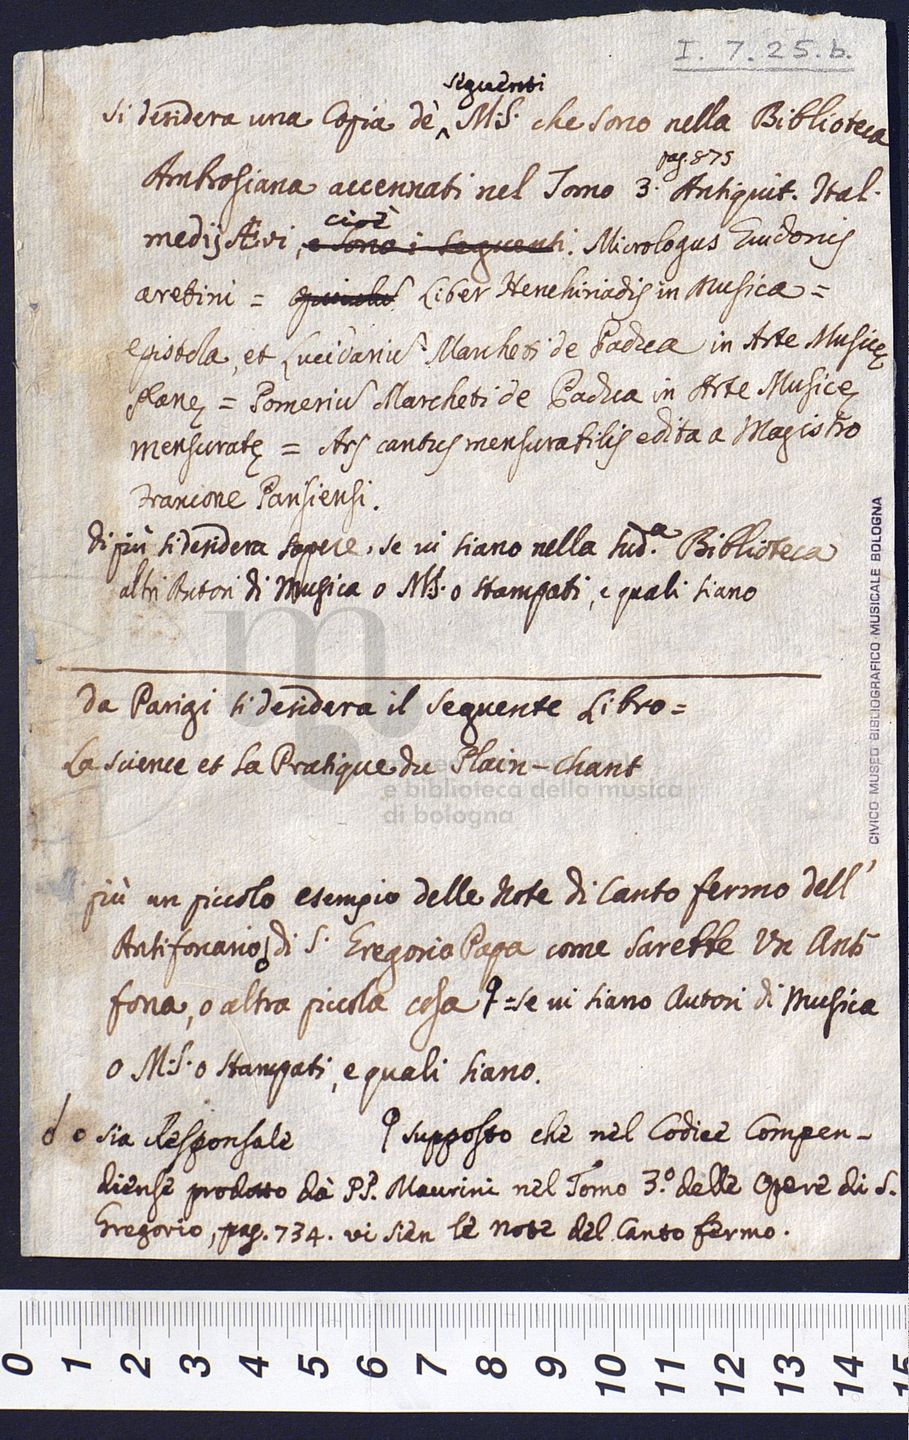 I. 7. 25. b.
seguenti
Si desidera una Copia dè M.S. che sono nella Biblioteca
pag. 875
Ambrosiana accennati nel Tomo 3. Antiquit. Ital.
cioè
medij Ævi, e sono i seguenti. Micrologus Guidonis
aretini = Liber Henchiriadis in Musica =
epistola, et Lucidariu Marcheti de Padua in Arte Musicę
planę = Pomeriu Marcheti de Padua in Arte Musicę
mensuratę = Ars cantus mensurabilis edita a Magistro
Francone Parisiensi.
di più si desidera sapere, se vi siano nella sud.ª Biblioteca
altri Autori di Musica o MS. o stampati, e quali siano
Da Parigi si desidera il seguente Libro =
La science et La Pratique du Plain-chant
più un piccolo esempio delle Note di Canto fermo dell'
Antifonario di S. Gregorio Papa come sarebbe Un Anti
fona, o altra piccola cosa = se vi siano Autori di Musica
o M.S. o stampati, e quali siano.
o sia Responsale supposto che nel Codice Compen-
diense prodotto dà PP. Maurini nel Tomo 3.º delle Opere di S.
Gregorio, pag. 734. vi sien le note del Canto fermo.
CIVICO MUSEO BIBLIOGRAFICO MUSICALE BOLOGNA
e biblioteca della musica
di bologna
0 1 2 3 4 5 6 7 8 9 10 11 12 13 14 15